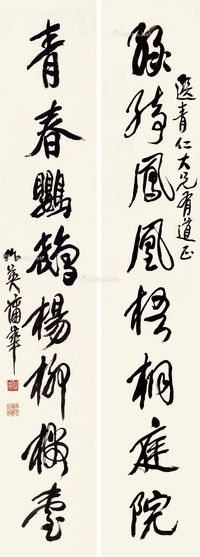 選青仁大兄有道正
綠綺鳳凰梧桐庭院
青春鸚鵡楊柳樓臺
作英蒲華